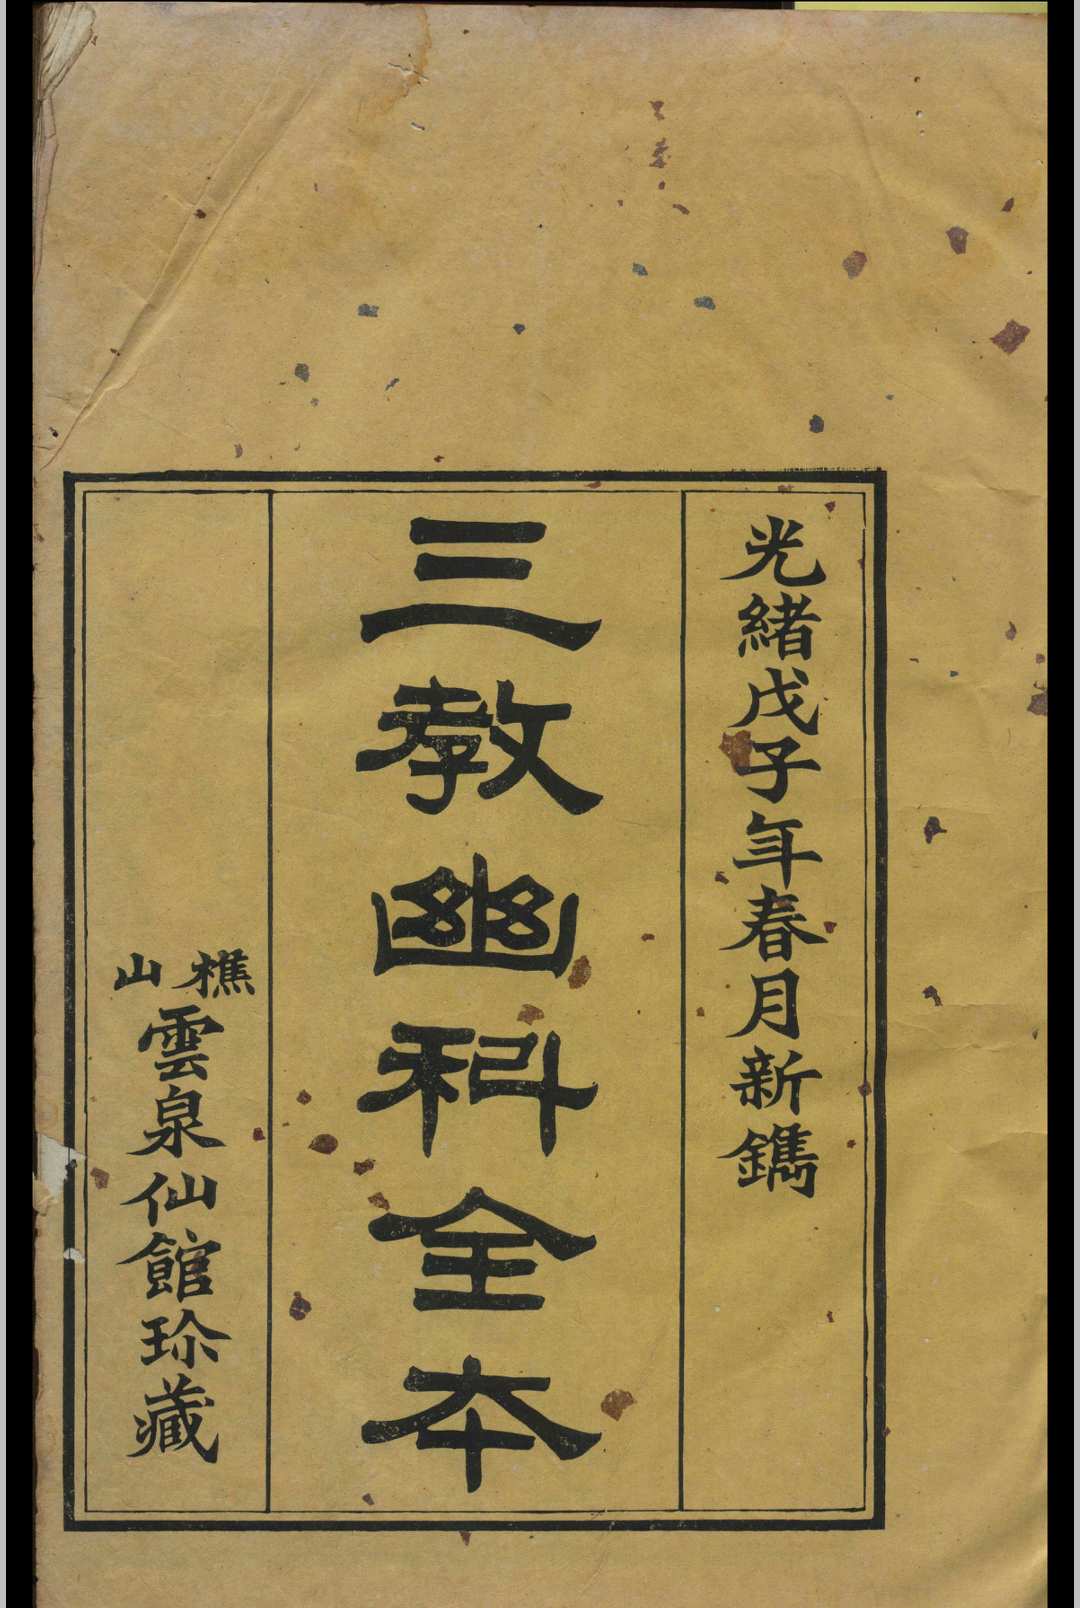 光緒戊子年春月新鐫
三教幽科全本
樵山
雲泉仙館珍藏